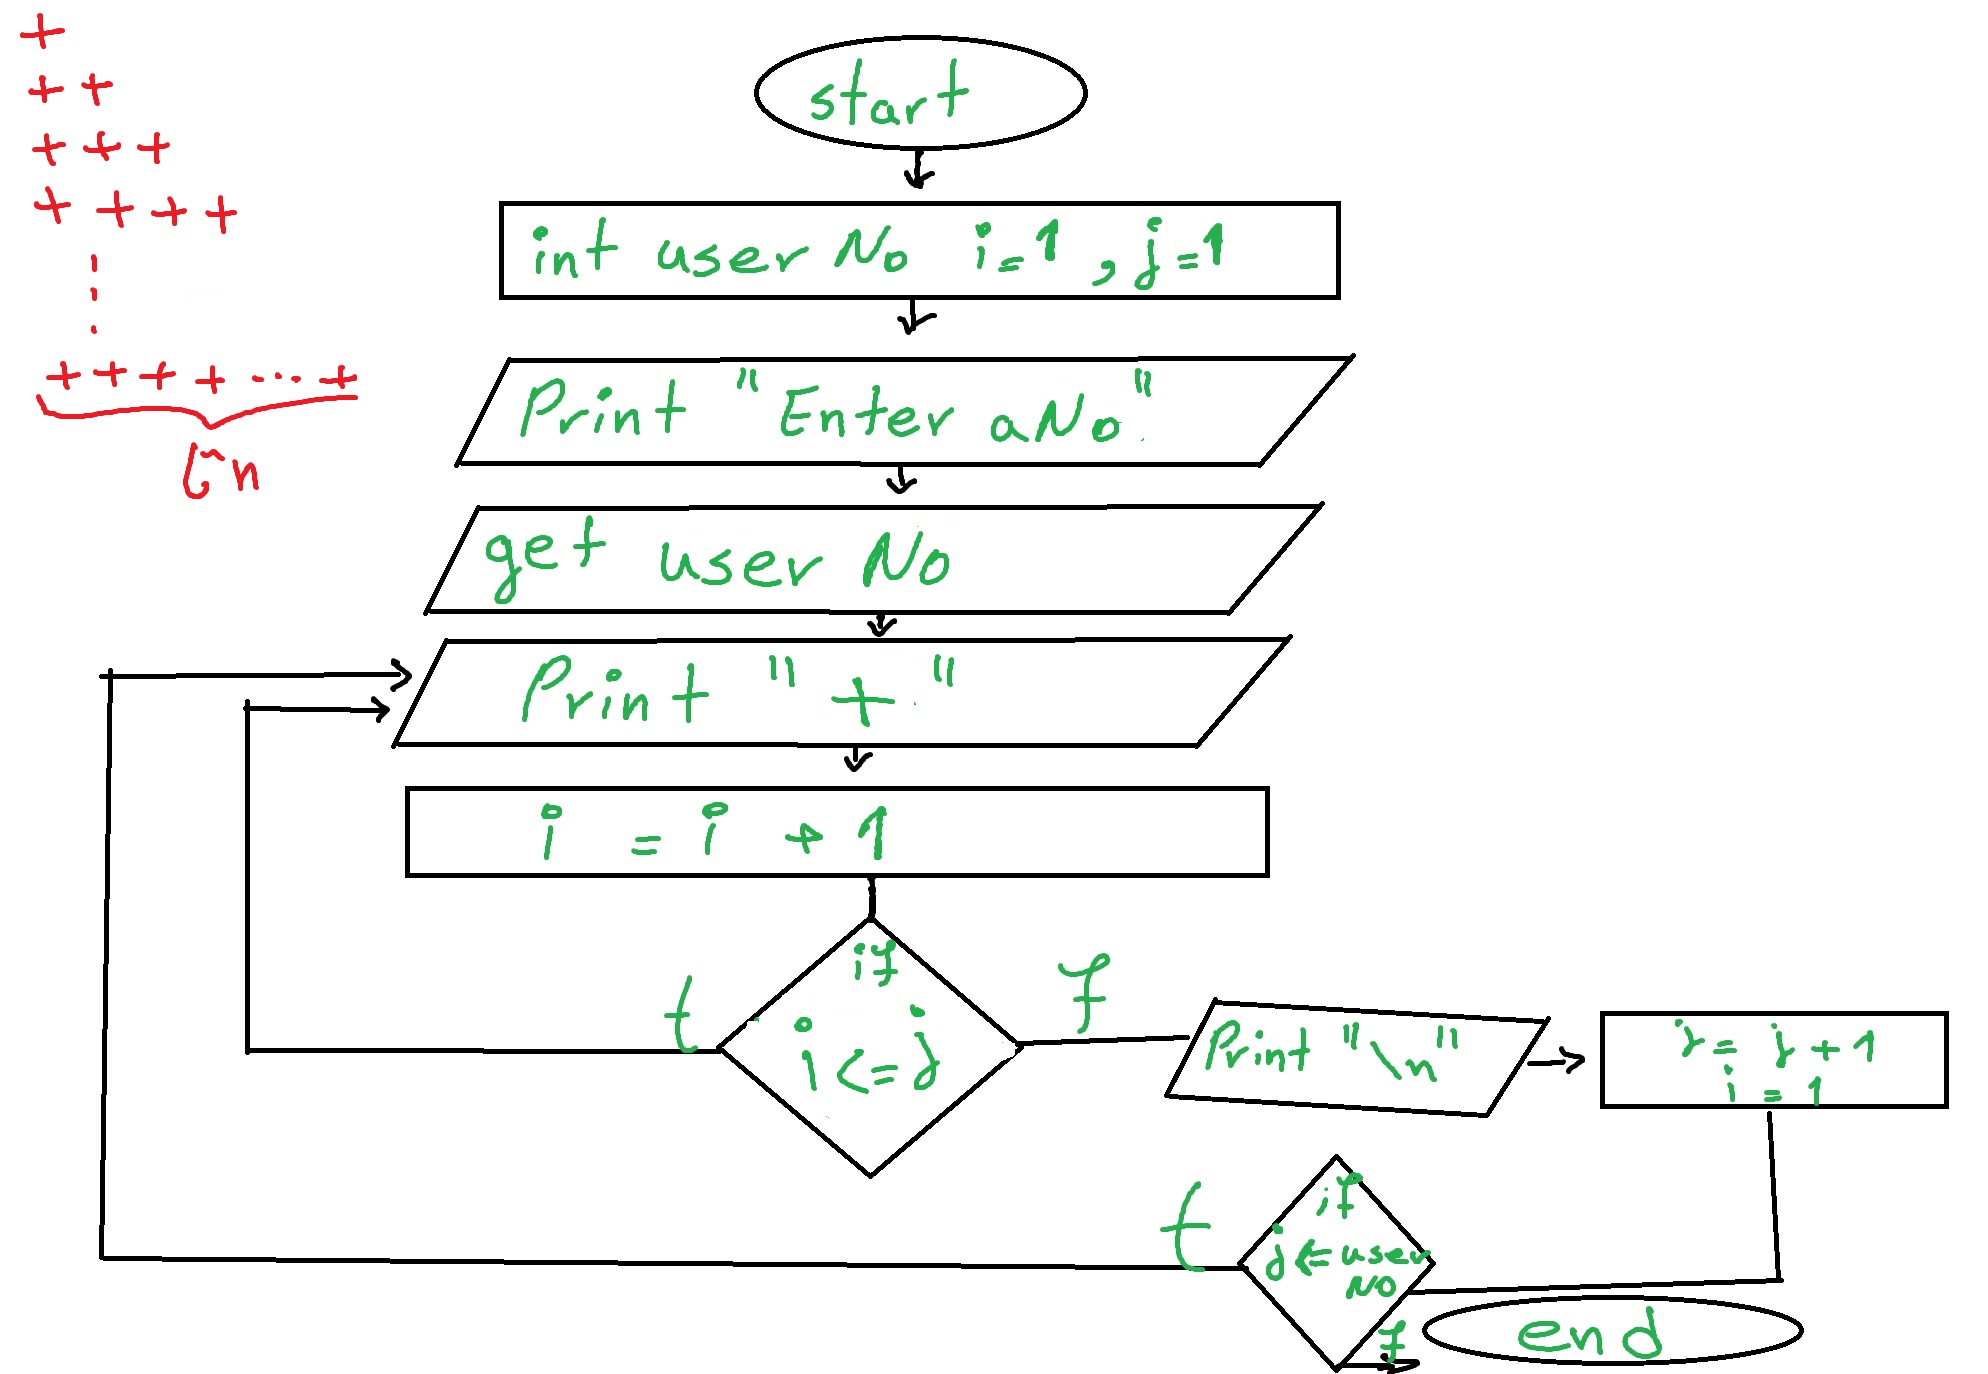 +
+ +
+ + +
+ + + +
+ + + + ... +
n تا
start
int user No i=1 , j=1
Print "Enter aNo"
get user No
Print "+"
i = i + 1
if
i <= j
t
f
Print "\n"
j = j + 1
i = 1
if
j <= user
NO
t
f
end